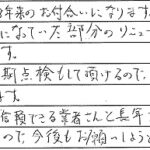 年来のお付合いになります。
になっていた部分のリニュー
す。
期点検もして頂けるので、
ます。
信頼できる業者さんと長年
ので今後もお願いしようと